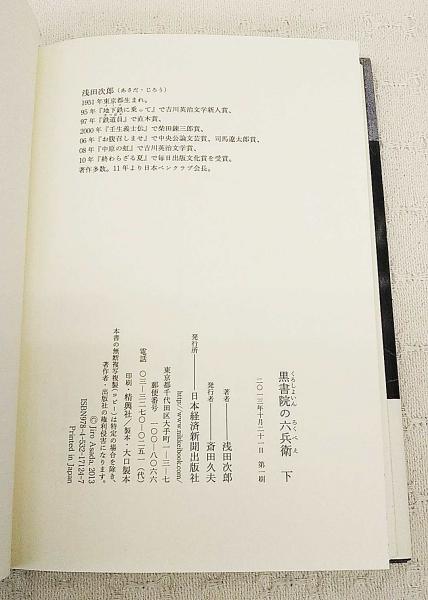 浅田次郎（あさだ・じろう）
1951年東京都生まれ。
95年『地下鉄に乗って』で吉川英治文学新人賞、
97年『鉄道員』で直木賞、
2000年『壬生義士伝』で柴田錬三郎賞、
06年『お腹召しませ』で中央公論文芸賞、司馬遼太郎賞、
08年『中原の虹』で吉川英治文学賞、
10年『終わらざる夏』で毎日出版文化賞を受賞。
著作多数。11年より日本ペンクラブ会長。
くろしょいん ろくべえ
黒書院の六兵衛 下
二〇一三年一〇月二十一日 第一刷
著者 浅田次郎
発行者 斎田久夫
発行所 日本経済新聞出版社
http://www.nikkeibook.com/
東京都千代田区大手町一―三―七
郵便番号 一〇〇―八〇六六
電話 〇三―三二七〇―〇二五一（代）
印刷・精興社／製本・大口製本
本書の無断複写複製（コピー）は特定の場合を除き、
著作者・出版社の権利侵害になります。
© Jiro Asada, 2013
ISBN978-4-532-17124-7
Printed in Japan